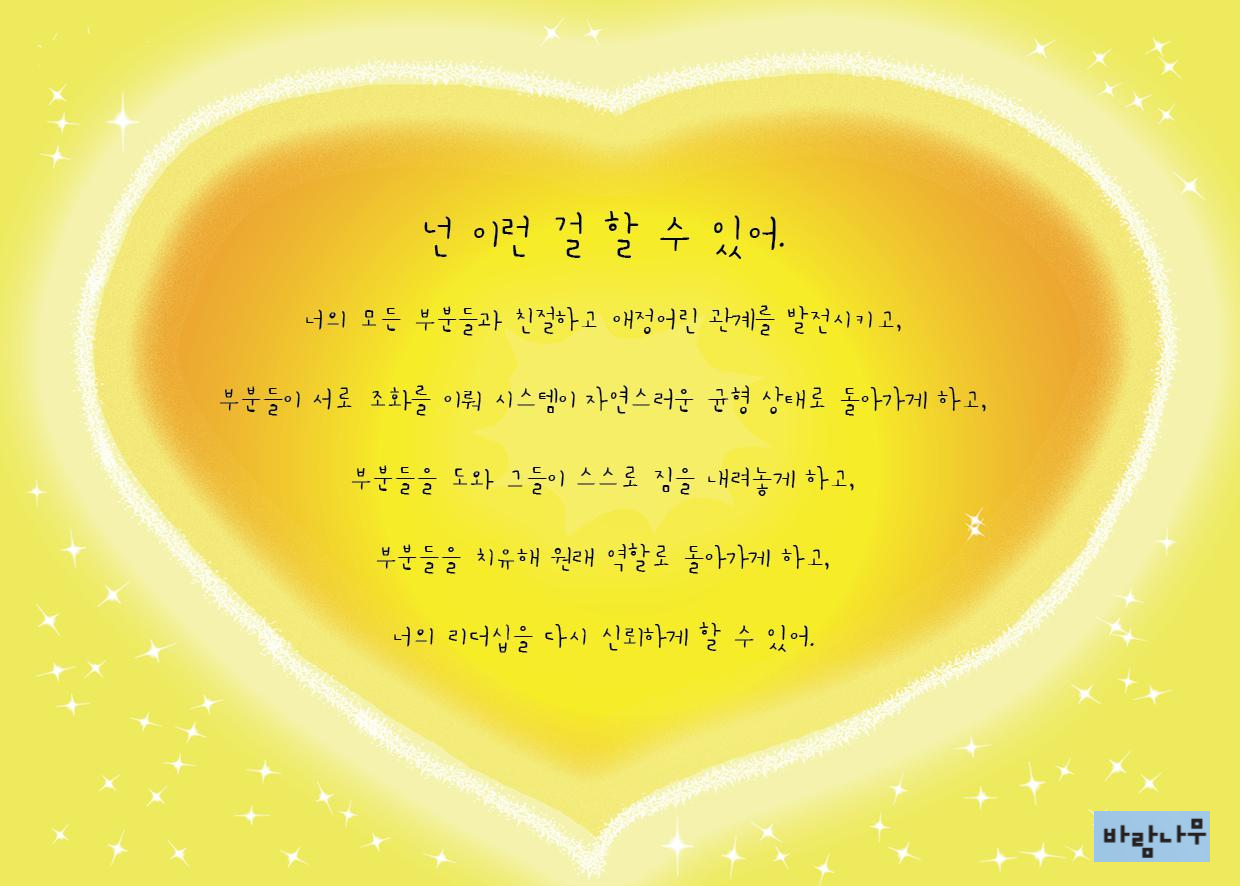 넌 이런 걸 할 수 있어.
너의 모든 부분들과 친절하고 애정어린 관계를 발전시키고,
부분들이 서로 조화를 이뤄 시스템이 자연스러운 균형 상태로 돌아가게 하고,
부분들을 도와 그들이 스스로 짐을 내려놓게 하고,
부분들을 치유해 원래 역할로 돌아가게 하고,
너의 리더십을 다시 신뢰하게 할 수 있어.
바람나무